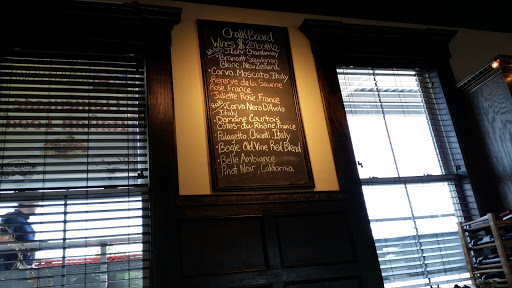 Chalk Board
Wines $20 bottle
Chardonnay
Sauvignon
Blanc, New Zealand
Corvo, Moscato, Italy
Rosé, France
Juliette Rosé, France
Corvo Nero D'Avola
Italy
Domaine Courtois
Cotes-du-Rhône, France
Chianti, Italy
Bogle Old Vine Red Blend
Belle Ambiance
Pinot Noir, California